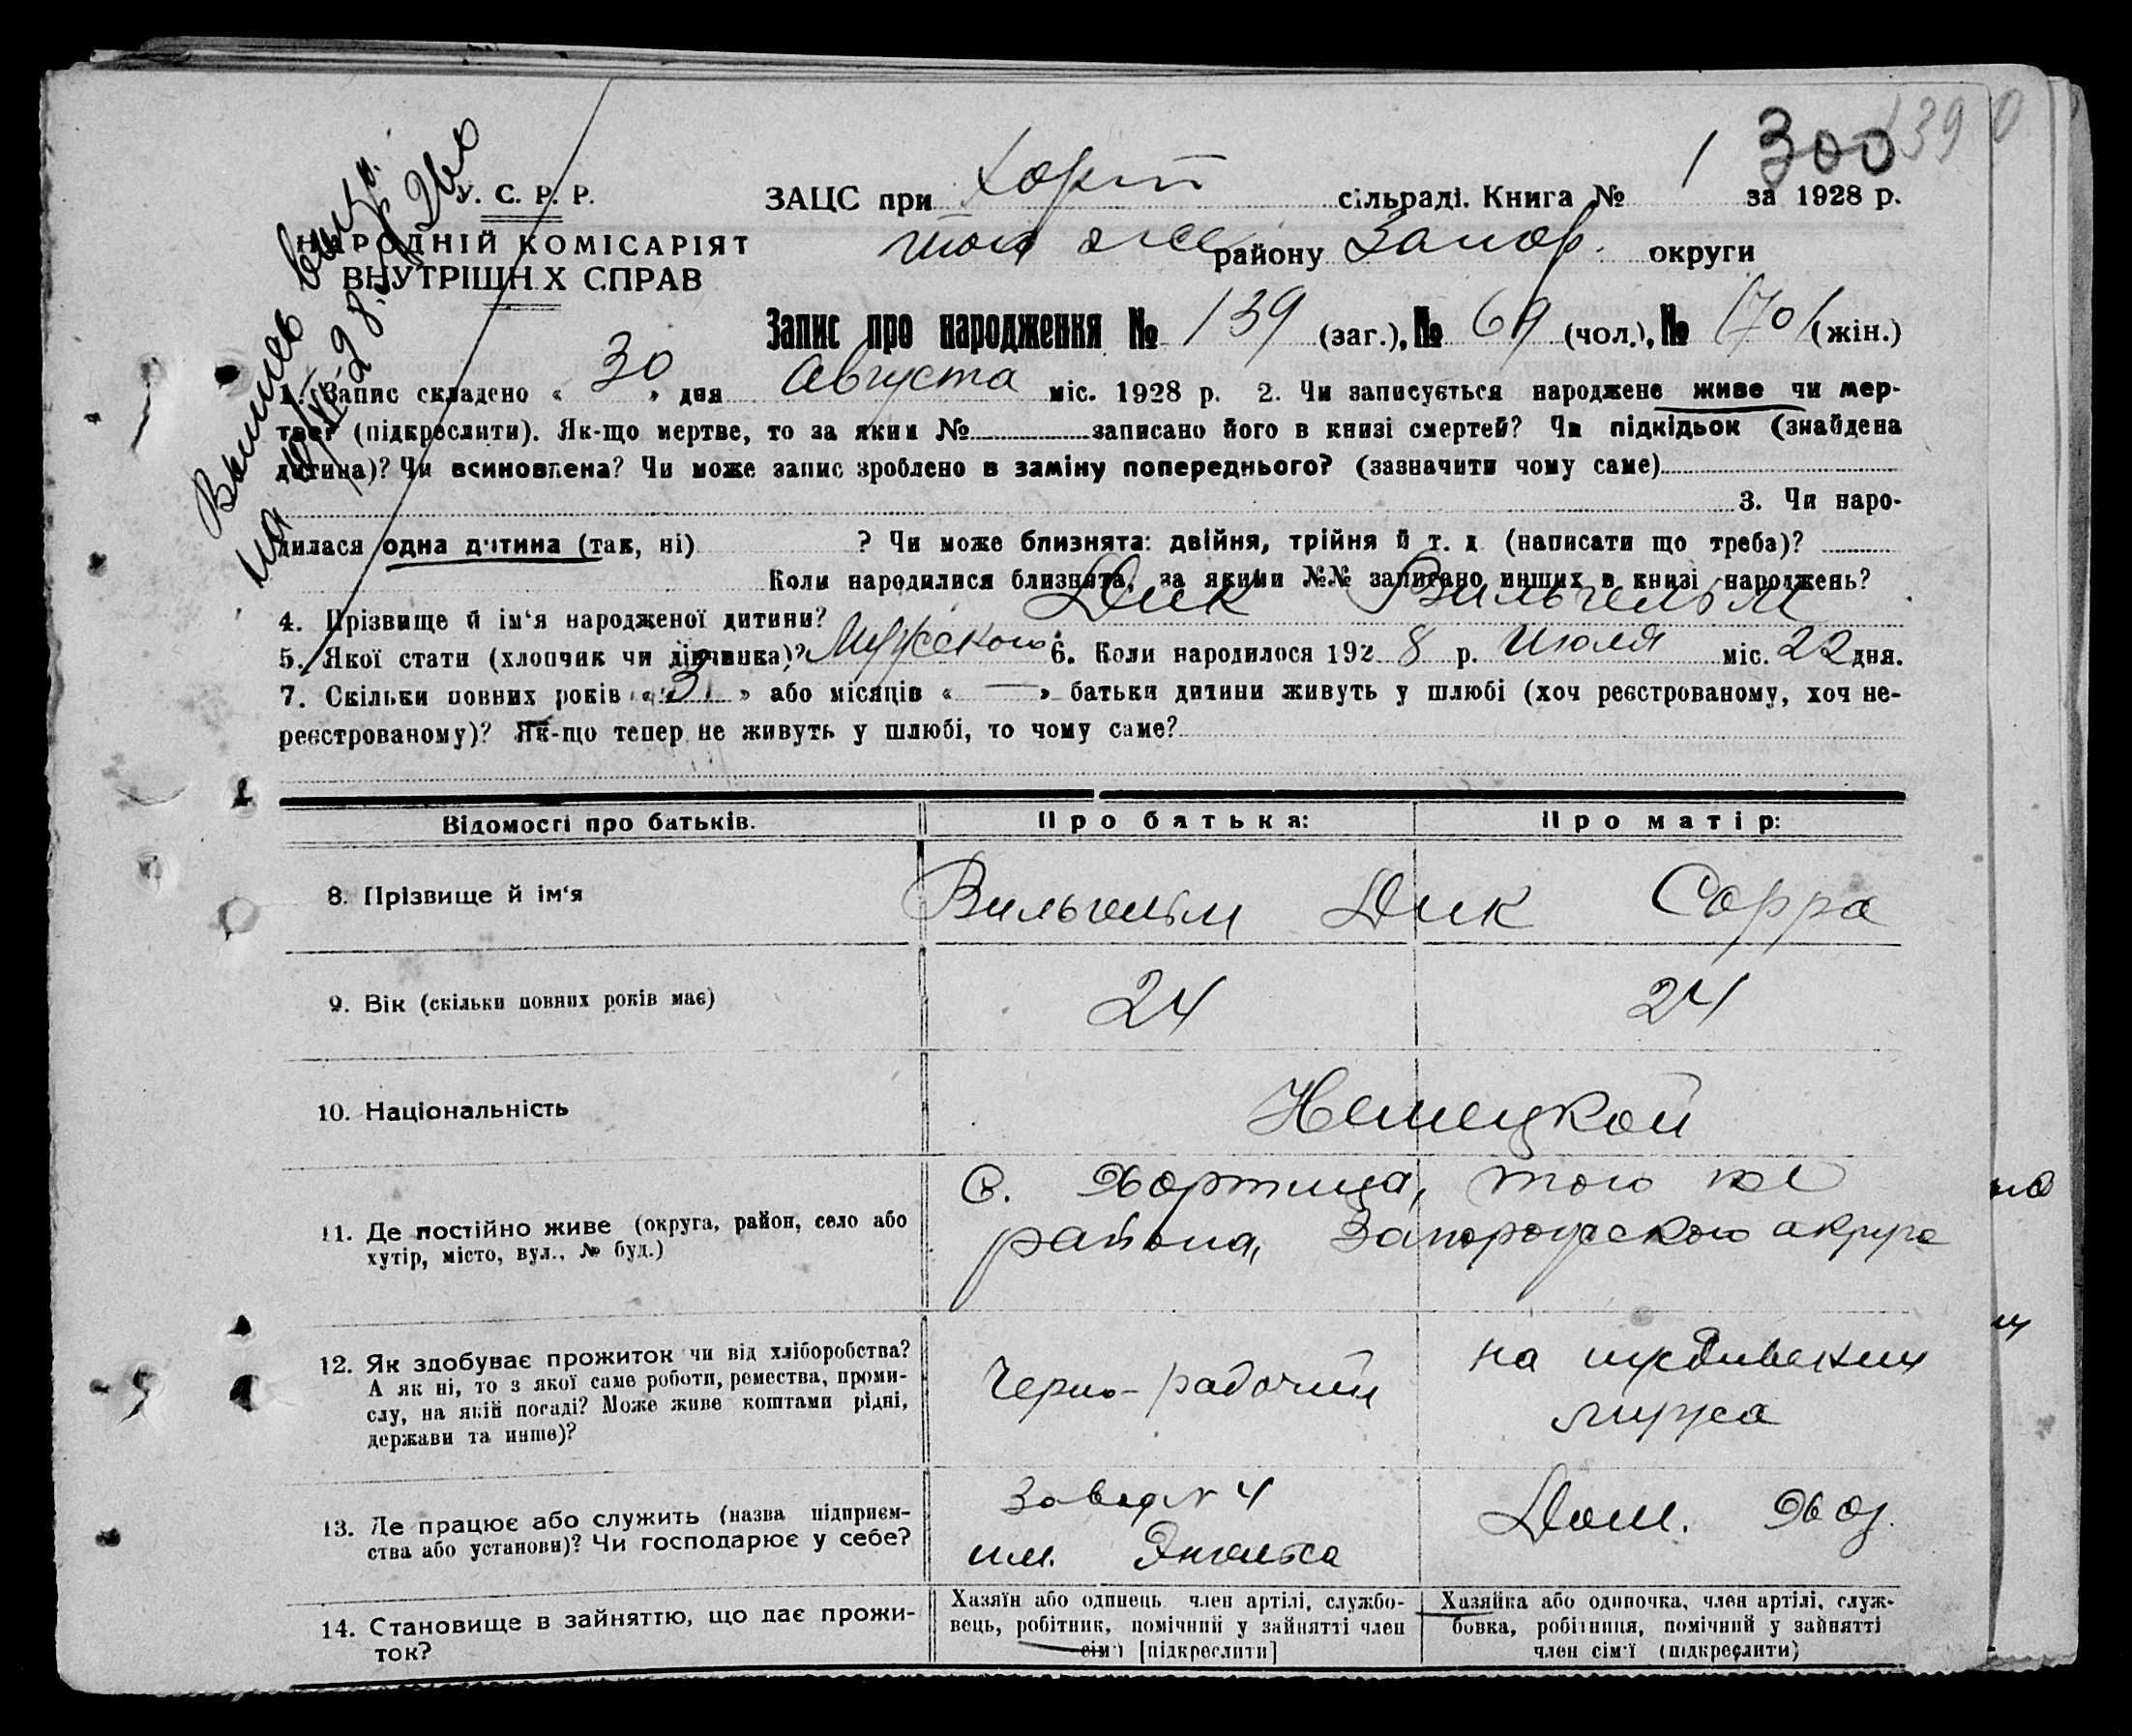 300 139
У. С. Р. Р.
НАРОДНІЙ КОМІСАРІЯТ
ВНУТРІШН Х СПРАВ
ЗАЦС при Хорт сільраді. Книга № 1 за 1928 р.
того же району Запор. округи
Запис про народження № 139 (заг.), № 69 (чол.), № 70 (жін.)
1. Запис складено « 30 » дня Августа міс. 1928 р. 2. Чи записується народжене живе чи мер-
твег (підкреслити). Як-що мертве, то за яким № записано його в книзі смертей? Чи підкідьок (знайдена
дитина)? Чи всиновлена? Чи може запис зроблено в заміну попереднього? (зазначити чому саме)
3. Чи наро-
дилася одна дитина (так, ні) ? Чи може близнята: двійня, трійня й т. д (написати що треба)?
Коли народилися близнята, за якими №№ записано инших в книзі народжень?
4. Прізвище й ім'я народженої дитини? Дик Вильгельм
5. Якої стати (хлопчик чи дівчинка)? Мужского 6. Коли народилося 192 8 р. Июля міс. 22 дня.
7. Скільки повних років « 3 » або місяців « — » батьки дитини живуть у шлюбі (хоч реєстрованому, хоч не-
реєстрованому)? Як-що тепер не живуть у шлюбі, то чому саме?
Відомості про батьків. Про батька: Про матір:
8. Прізвище й ім'я Вильгельм Дик Сарра
9. Вік (скільки повних років має) 24 24
10. Національність Немецкой
11. Де постійно живе (округа, район, село або
хутір, місто, вул., № буд.)
С. Хортица, того же
района, Запорожского округа
12. Як здобуває прожиток чи від хліборобства?
А як ні, то з якої саме роботи, ремества, проми-
слу, на якій посаді? Може живе коштами рідні,
держави та инше)?
Черно-рабочий
на иждивении
мужа
13. Де працює або служить (назва підприєм-
ства або установи)? Чи господарює у себе?
Завод № 4
им. Энгельса
Дом. Хоз.
14. Становище в зайняттю, що дає прожи-
ток?
Хазяїн або одинець член артілі, службо-
вець, робітник, помічний у зайнятті член
сім'ї [підкреслити]
Хазяйка або одиночка, член артілі, служ-
бовка, робітниця, помічний у зайнятті
член сім'ї (підкреслити)